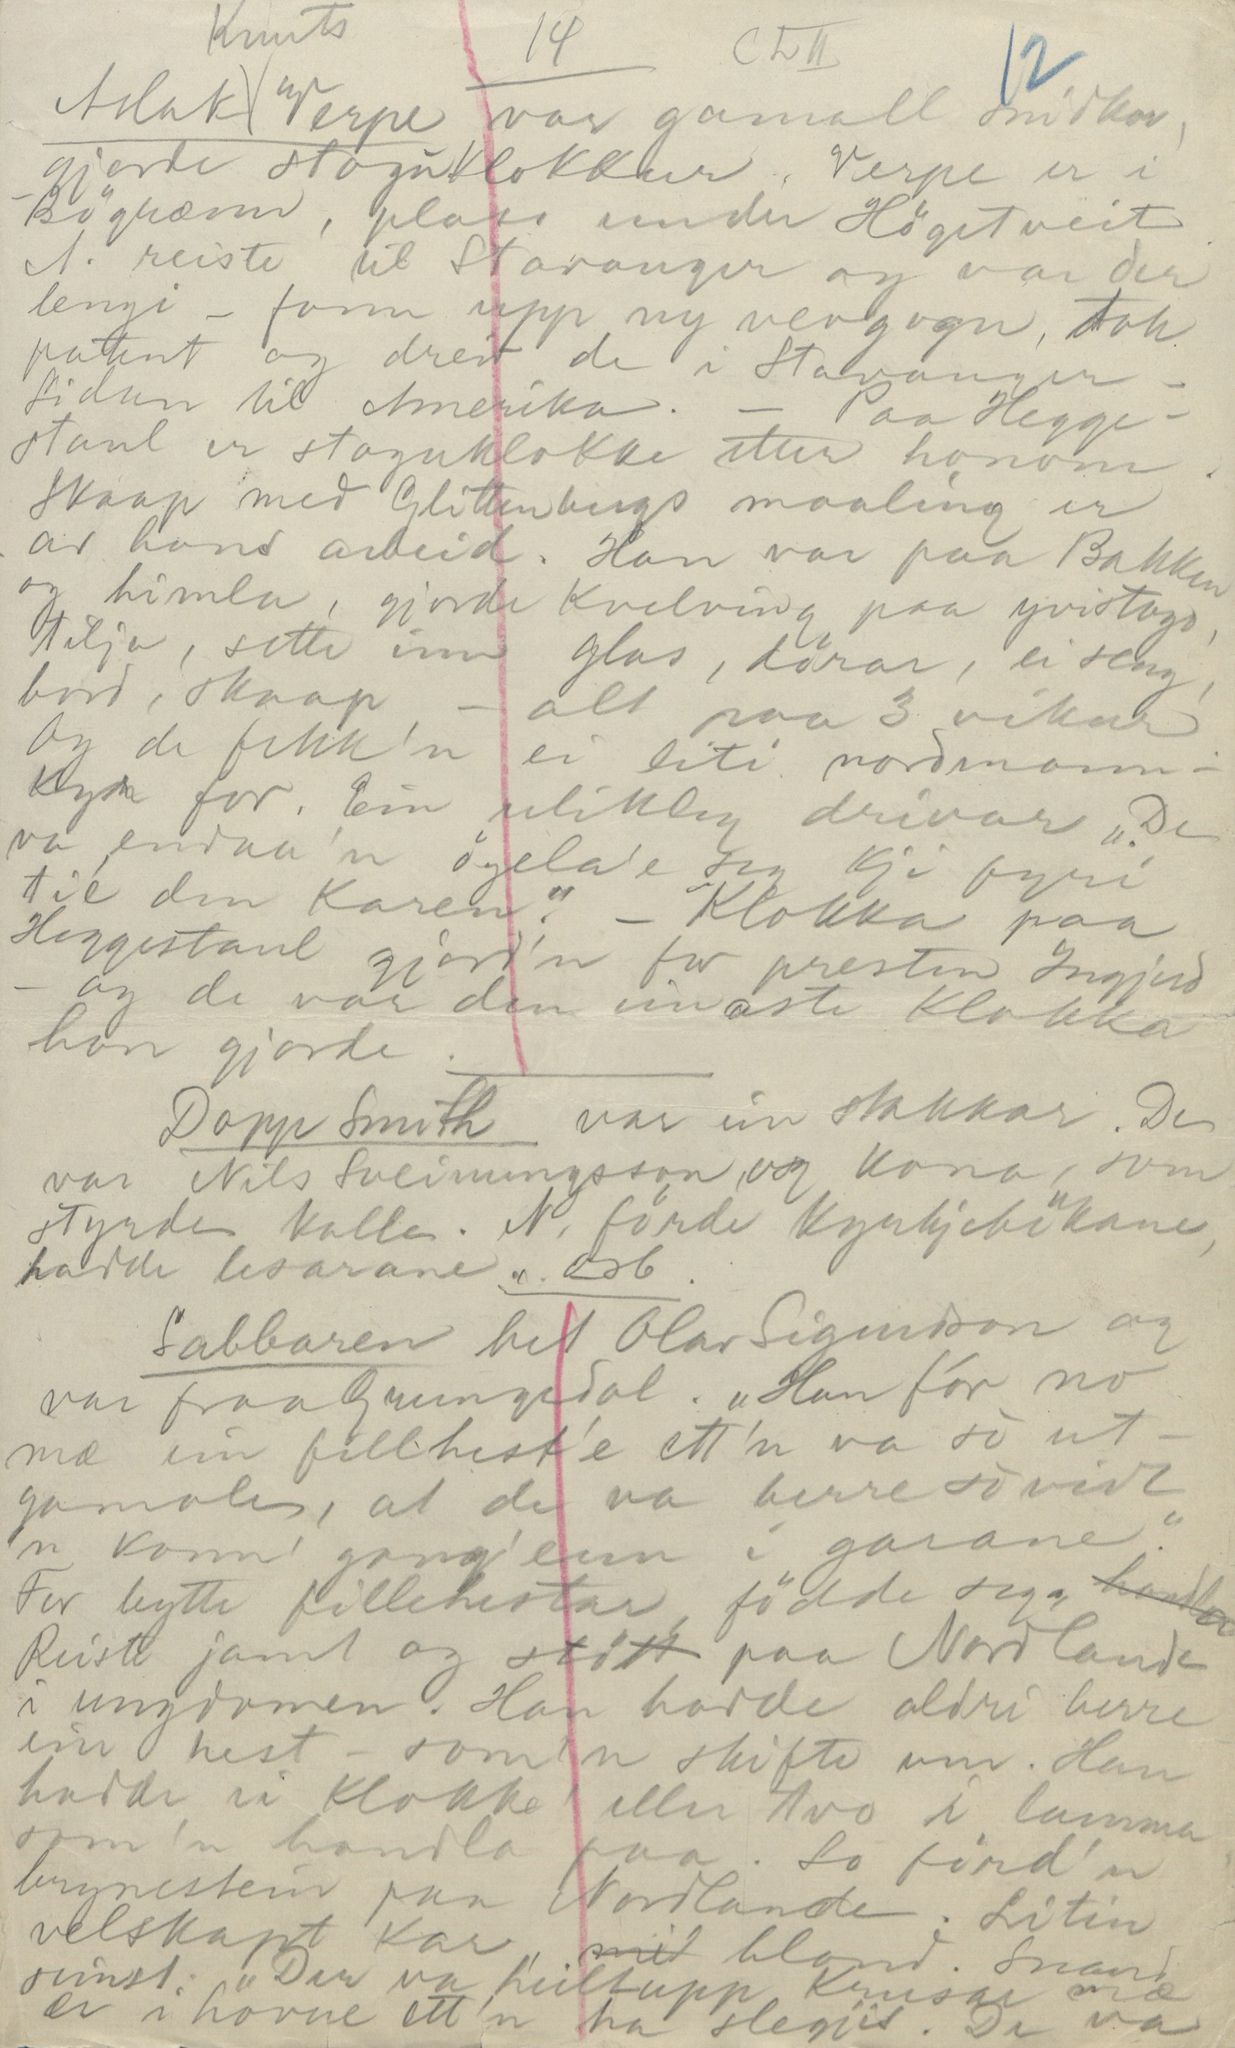 Knuts 14 12
Aslak Verpe var gamall snidkar,
gjorde stoguklokkur. Verpe er i
Bögrænn, plass under Högetveit.
A. reiste til Stavanger og var der
lengi – fann upp ny vevgogn, tok
patent og dreiv de i Stavanger –
Sidan til Amerika. – Paa Hegge-
staul er stoguklokke etter honom.
Skaap med Glittenbergs maaling er
av hans arbeid. Han var paa Bakken
og himla, gjorde kvelving paa yvistogo,
tilja, sette inn glas, dörar, ei seng,
bord, skaap – alt paa 3 vikur
og de fekk'n ei liti nordmann-
kyr for. Ein ulikleg drivar. "De
va endaa'n ögela'e seg kji fyri
til den karen". – Klokka paa
Heggestaul gjord'n for presten Ingjerd
– og de var den einaste klokka
han gjorde.
Dopp Smith var ein stakkar. De
var Nils Sveinungsson og kona, som
styrde kalle. N. förde kyrkjebökane,
hadde lesarane o.s.b.
Sabbaren het Olav Sigurdson og
var fraa Grungedal. "Han fór no
mæ ein fillhest'e ett'n va so ut-
gamale, at de va berre so vidt
'n kann' gang'enn i garane".
For bytte fillehestar, födde seg, handla
Reiste jamt og stött paa Nordlande
i ungdomen. Han hadde aldri berre
ein hest – som'n skifte um. Han
hadde ei klokke eller tvo i lumma
som'n handla paa. So förd'n
brynestein paa Nordlande. Litin
velskapt kar, bland. Snard
seinst. "Der va heiltupp krusar mæ
er i hovue ett'n ha slegjis. De va